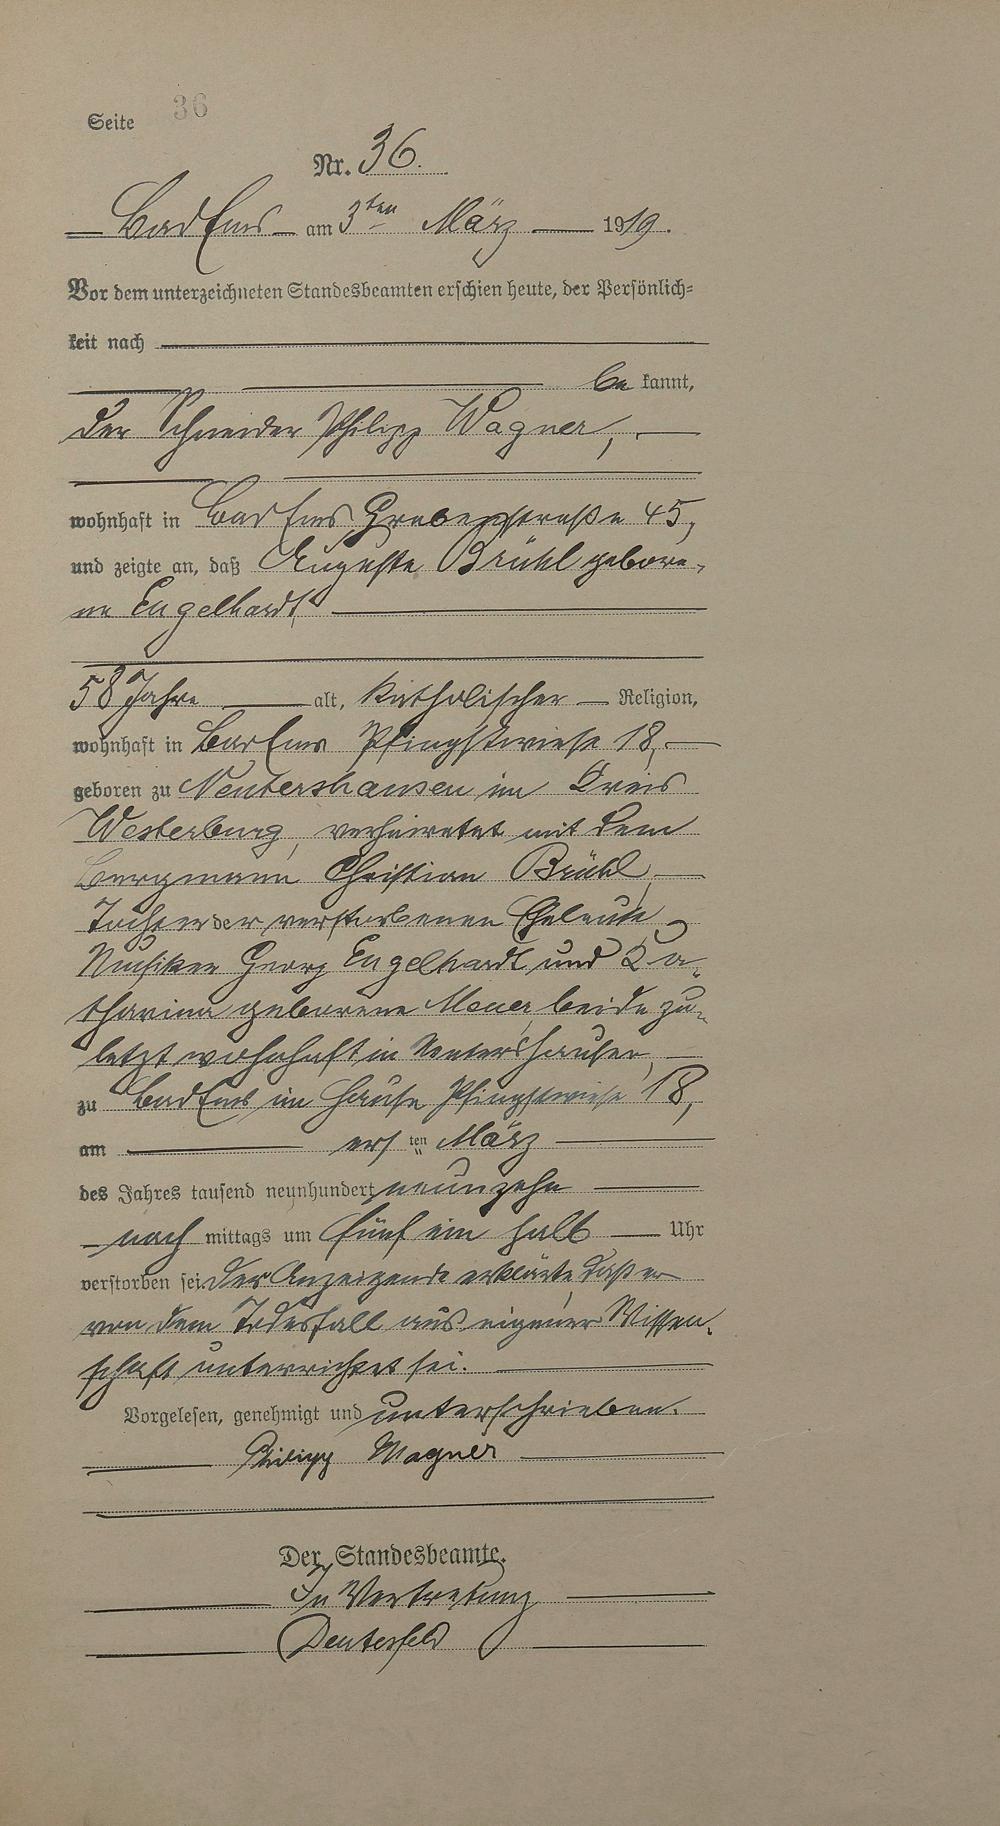 Seite 36
Nr. 36.
Bad Ems am 3ten März 1919.
Vor dem unterzeichneten Standesbeamten erschien heute, der Persönlich=
keit nach
be kannt,
der Schneider Philipp Wagner,
wohnhaft in Bad Ems, Grabenstraße 45,
und zeigte an, daß Auguste Brühl gebore-
ne Engelhardt
58 Jahre alt, katholischer Religion,
wohnhaft in Bad Ems Pfingstwiese 18,
geboren zu Nentershausen im Kreis
Westerburg, verheiratet mit dem
Bergmann Christian Brühl,
Tochter der verstorbenen Eheleute
Musiker Georg Engelhardt und Ka-
tharina geborene beide zu-
letzt wohnhaft in Nentershausen,
zu Bad Ems im Hause Pfingstwiese 18,
am ersten März
des Jahres tausend neunhundert neunzehn
nach mittags um fünf ein halb Uhr
verstorben sei. Der Anzeigende erklärte, daß er
von dem Todesfall aus eigener Wissen-
schaft unterrichtet sei.
Vorgelesen, genehmigt und unterschrieben.
Philipp Wagner
Der Standesbeamte.
In Vertretung